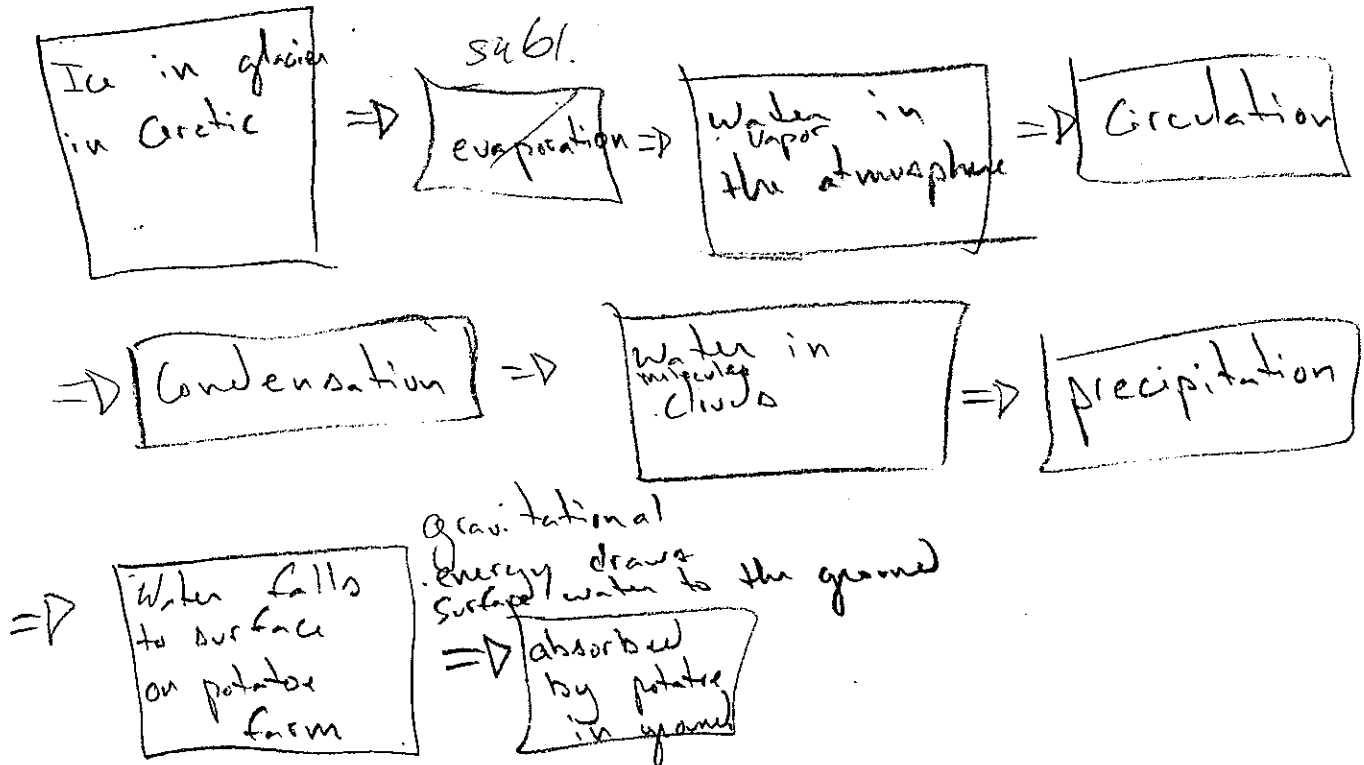 Ice in glacier
in arctic
⇒
subl.
evaporation
⇒
Water in
vapor
the atmosphere
⇒
Circulation
⇒
Condensation
⇒
water in
molecules
clouds
⇒
precipitation
⇒
Water falls
to surface
on potatoe
farm
gravitational
energy draws
surface water to the ground
⇒
absorbed
by potatoe
in ground